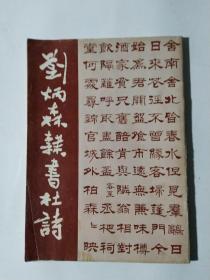 舍南舍北皆春水但見羣鷗日
日來花徑不曾緣客掃蓬門今
始為君開盤飧市遠無兼味樽
酒家貧只舊醅肯與鄰翁相對
飲隔籬呼取盡餘盃 客至 丞相祠
堂何處尋錦官城外柏森〻映
劉炳森隸書杜詩